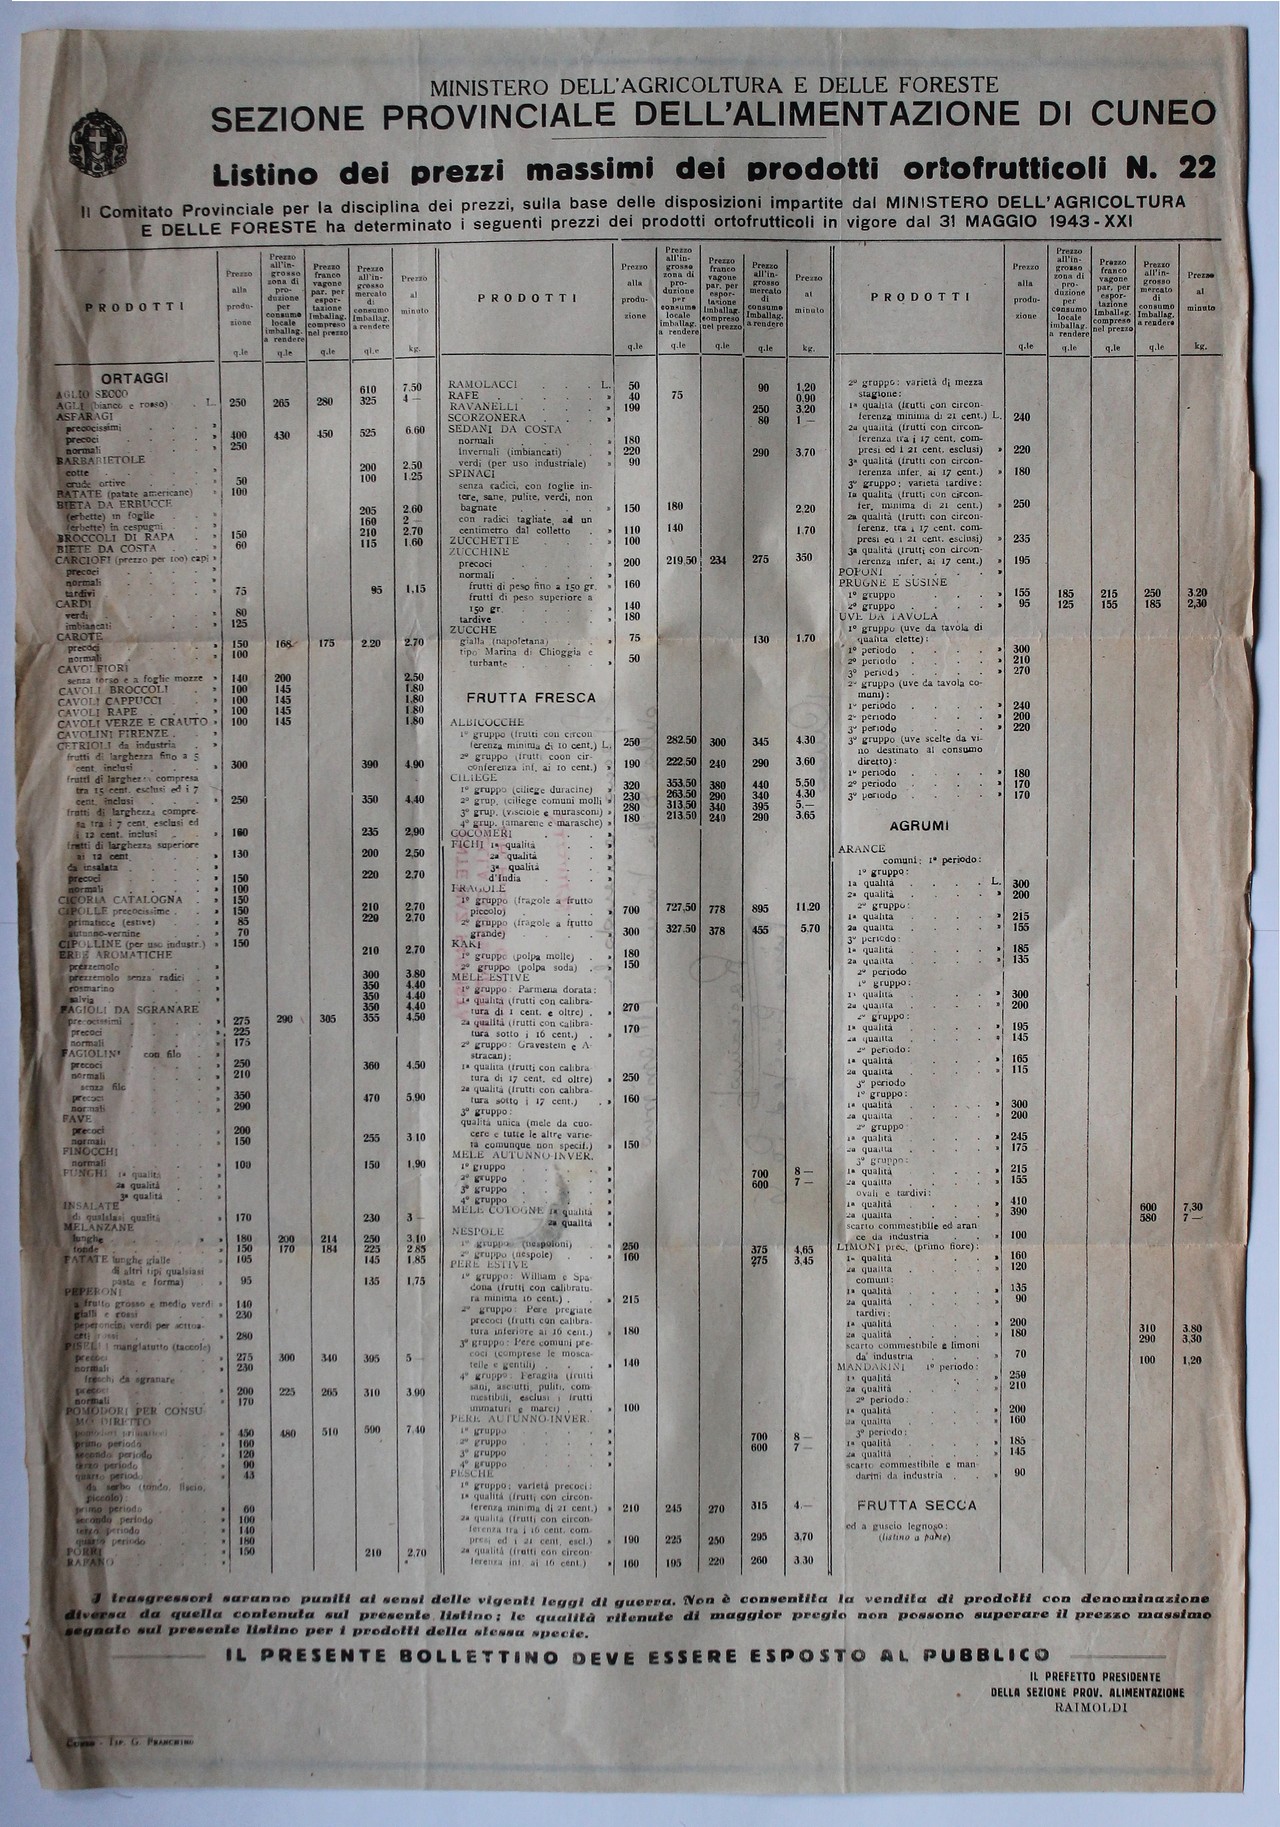 MINISTERO DELL'AGRICOLTURA E DELLE FORESTE
SEZIONE PROVINCIALE DELL'ALIMENTAZIONE DI CUNEO
Listino dei prezzi massimi dei prodotti ortofrutticoli N. 22
Il Comitato Provinciale per la disciplina dei prezzi, sulla base delle disposizioni impartite dal MINISTERO DELL'AGRICOLTURA
E DELLE FORESTE ha determinato i seguenti prezzi dei prodotti ortofrutticoli in vigore dal 31 MAGGIO 1943-XXI
PRODOTTI
Prezzo alla produzione q.le
Prezzo all'ingrosso zona di produzione per consumo locale imballag. a rendere q.le
Prezzo franco vagone par. per esportazione Imballag. compreso nel prezzo q.le
Prezzo all'ingrosso mercato di consumo Imballag. a rendere q.le
Prezzo al minuto kg.
ORTAGGI
AGLIO SECCO 610 7.50
AGLI (bianco e rosso) L. 250 265 280 325 4 —
ASPARAGI
precocissimi
precoci » 400 430 450 525 6.60
normali » 250
BARBABIETOLE
cotte 200 2.50
crude ortive » 50 100 1.25
BATATE (patate americane) » 100
BIETA DA ERBUCCE
(erbette) in foglie 205 2.60
(erbette) in cespugni 160 2 —
BROCCOLI DI RAPA » 150 210 2.70
BIETE DA COSTA » 60 115 1.60
CARCIOFI (prezzo per 100) capi
precoci
normali
tardivi » 75 95 1,15
CARDI
verdi » 80
imbiancati » 125
CAROTE
precoci » 150 168 175 2.20 2.70
normali » 100
CAVOLFIORI
senza torso e a foglie mozze » 140 200 2.50
CAVOLI BROCCOLI » 100 145 1.80
CAVOLI CAPPUCCI » 100 145 1.80
CAVOLI RAPE » 100 145 1.80
CAVOLI VERZE E CRAUTO » 100 145 1.80
CAVOLINI FIRENZE
CETRIOLI da industria
frutti di larghezza fino a 5
cent. inclusi » 300 390 4.90
frutti di larghezza compresa
tra 15 cent. esclusi ed i 7
cent. inclusi » 250 350 4.40
frutti di larghezza compre-
sa tra i 7 cent. esclusi ed
i 12 cent. inclusi » 160 235 2,90
frutti di larghezza superiore
ai 12 cent. » 130 200 2,50
da insalata
precoci » 150 220 2,70
normali » 100
CICORIA CATALOGNA » 150
CIPOLLE precocissime » 150 210 2.70
primaticce (estive) » 85 220 2.70
autunno-vernine » 70
CIPOLLINE (per uso industr.) » 150
ERBE AROMATICHE 210 2.70
prezzemolo
prezzemolo senza radici 300 3.80
rosmarino 350 4.40
salvia 350 4.40
FAGIOLI DA SGRANARE 350 4.40
precocissimi » 275 290 305 355 4.50
precoci » 225
normali » 175
FAGIOLINI con filo
precoci » 250 360 4.50
normali » 210
senza filo
precoci » 350 470 5.90
normali » 290
FAVE
precoci » 200
normali » 150 255 3.10
FINOCCHI
normali » 100 150 1.90
FUNGHI 1ª qualità
2ª qualità
3ª qualità
INSALATE
di qualsiasi qualità » 170 230 3 —
MELANZANE
lunghe » 180 200 214 250 3.10
tonde » 150 170 184 225 2.85
PATATE lunghe gialle » 105 145 1,85
di altri tipi qualsiasi
pasta e forma) » 95 135 1,75
PEPERONI
a frutto grosso e medio verdi » 140
gialli e rossi » 230
peperoncini verdi per sottoa-
ceti rossi » 280
PISELLI mangiatutto (taccole)
precoci » 275 300 340 395 5 —
normali » 230
freschi da sgranare
precoci » 200 225 265 310 3.90
normali » 170
POMODORI PER CONSU
MO DIRETTO
pomodori primaticci » 450 480 510 590 7.40
primo periodo » 160
secondo periodo » 120
terzo periodo » 90
quarto periodo » 43
da serbo (tondo, liscio,
piccolo):
primo periodo » 60
secondo periodo » 100
terzo periodo » 140
quarto periodo » 180
PORRI » 150 210 2.70
RAPANO
PRODOTTI
Prezzo alla produzione q.le
Prezzo all'ingrosso zona di produzione per consumo locale imballag. a rendere q.le
Prezzo franco vagone par. per esportazione Imballag. compreso nel prezzo q.le
Prezzo all'ingrosso mercato di consumo Imballag. a rendere q.le
Prezzo al minuto kg.
RAMOLACCI L. 50 90 1,20
RAFE » 40 75 0.90
RAVANELLI » 190 250 3.20
SCORZONERA 80 1 —
SEDANI DA COSTA
normali » 180
Invernali (imbiancati) » 220 290 3.70
verdi (per uso industriale) » 90
SPINACI
senza radici, con foglie in-
tere, sane, pulite, verdi, non
bagnate » 150 180 2.20
con radici tagliate, ad un
centimetro dal colletto » 110 140 1.70
ZUCCHETTE » 100
ZUCCHINE
precoci » 200 219.50 234 275 350
normali
frutti di peso fino a 150 gr. » 160
frutti di peso superiore a
150 gr. » 140
tardive » 180
ZUCCHE
gialla (napoletana) » 75 130 1.70
tipo Marina di Chioggia e
turbante » 50
FRUTTA FRESCA
ALBICOCCHE
1º gruppo (frutti con circon
ferenza minima di 10 cent.) L. 250 282.50 300 345 4.30
2º gruppo (frutti coon cir-
conferenza inf. ai 10 cent.) » 190 222.50 240 290 3.60
CILIEGE
1º gruppo (ciliege duracine) » 320 353.50 380 440 5.50
2º grup. (ciliege comuni molli » 230 263.50 290 340 4.30
3º grup. (visciole e murasconi) » 280 313.50 340 395 5.—
4º grup. (amarene e marasche) » 180 213.50 240 290 3.65
COCOMERI
FICHI 1ª qualità
2ª qualità
3ª qualità
d'India
FRAGOLE
1º gruppo (fragole a frutto
piccolo) » 700 727.50 778 895 11.20
2º gruppo (fragole a frutto
grande) » 300 327.50 378 455 5.70
KAKI
1º gruppo (polpa molle) » 180
2º gruppo (polpa soda) » 150
MELE ESTIVE
1º gruppo: Parmena dorata:
1ª qualità (frutti con calibra-
tura di 1 cent. e oltre) » 270
2ª qualità (frutti con calibra-
tura sotto i 16 cent.) » 170
2º gruppo: Gravestein e A-
stracan):
1ª qualità (frutti con calibra
tura di 17 cent. ed oltre) » 250
2ª qualità (frutti con calibra-
tura sotto i 17 cent.) » 160
3º gruppo:
qualità unica (mele da cuo-
cere e tutte le altre varie-
tà comunque non specif.) » 150
MELE AUTUNNO-INVER.
1º gruppo 700 8 —
2º gruppo 600 7 —
3º gruppo
4º gruppo
MELE COTOGNE 1ª qualità
2ª qualità
NESPOLE
1º gruppo (nespoloni) » 250 375 4,65
2º gruppo (nespole) » 160 275 3.45
PERE ESTIVE
1º gruppo: William e Spa-
dona (frutti con calibratu-
ra minima 16 cent.) » 215
2º gruppo: Pere pregiate
precoci (frutti con calibra-
tura inferiore ai 16 cent.) » 180
3º gruppo: Pere comuni pre-
coci (comprese le mosca-
telle e gentili) » 140
4º gruppo: Feraglia (frutti
sani, asciutti, puliti, com-
mestibili, esclusi i frutti
immaturi e marci) » 100
PERE AUTUNNO-INVER.
1º gruppo 700 8 —
2º gruppo 600 7 —
3º gruppo
4º gruppo
PESCHE
1º gruppo: varietà precoci:
1ª qualità (frutti con circon-
ferenza minima di 21 cent.) » 210 245 270 315 4.—
2ª qualità (frutti con circon-
ferenza tra i 16 cent. com-
presi ed i 21 cent. escl.) » 190 225 250 295 3,70
2ª qualità (frutti con circon-
ferenza inf. ai 16 cent.) » 160 195 220 260 3.30
PRODOTTI
Prezzo alla produzione q.le
Prezzo all'ingrosso zona di produzione per consumo locale imballag. a rendere q.le
Prezzo franco vagone par. per esportazione Imballag. compreso nel prezzo q.le
Prezzo all'ingrosso mercato di consumo Imballag. a rendere q.le
Prezzo al minuto kg.
2º gruppo: varietà di mezza
stagione:
1ª qualità (frutti con circon-
ferenza minima di 21 cent.) L. 240
2ª qualità (frutti con circon-
ferenza tra i 17 cent. com-
presi ed i 21 cent. esclusi) » 220
3ª qualità (frutti con circon-
ferenza infer. ai 17 cent.) » 180
3º gruppo: varietà tardive:
1ª qualità (frutti con circon-
fer. minima di 21 cent.) » 250
2ª qualità (frutti con circon-
ferenz. tra i 17 cent. com-
presi ed i 21 cent. esclusi) » 235
3ª qualità (frutti con circon-
ferenza infer. ai 17 cent.) » 195
POPONI
PRUGNE E SUSINE
1º gruppo » 155 185 215 250 3.20
2º gruppo » 95 125 155 185 2,30
UVE DA TAVOLA
1º gruppo (uve da tavola di
qualità elette):
1º periodo » 300
2º periodo » 210
3º periodo » 270
2º gruppo (uve da tavola co-
muni):
1º periodo » 240
2º periodo » 200
3º periodo » 220
3º gruppo (uve scelte da vi-
no destinato al consumo
diretto):
1º periodo » 180
2º periodo » 170
3º periodo » 170
AGRUMI
ARANCE
comuni: 1º periodo:
1º gruppo:
1ª qualità L. 300
2ª qualità » 200
2º gruppo:
1ª qualità » 215
2ª qualità » 155
3º gruppo:
1ª qualità » 185
2ª qualità » 135
2º periodo
1º gruppo:
1ª qualità » 300
2ª qualità » 200
2º gruppo:
1ª qualità » 195
2ª qualità » 145
2º periodo:
1ª qualità » 165
2ª qualità » 115
3º periodo
1º gruppo:
1ª qualità » 300
2ª qualità » 200
2º gruppo:
1ª qualità » 245
2ª qualità » 175
3º gruppo:
1ª qualità » 215
2ª qualità » 155
ovali e tardivi:
1ª qualità » 410 600 7,30
2ª qualità » 390 580 7 —
scarto commestibile ed aran
ce da industria » 100
LIMONI prec. (primo fiore):
1ª qualità » 160
2ª qualità » 120
comuni:
1ª qualità » 135
2ª qualità » 90
tardivi:
1ª qualità » 200 310 3.80
2ª qualità » 180 290 3,30
scarto commestibile e limoni
da' industria » 70 100 1,20
MANDARINI 1º periodo:
1ª qualità » 250
2ª qualità » 210
2º periodo:
1ª qualità » 200
2ª qualità » 160
3º periodo:
1ª qualità » 185
2ª qualità » 145
scarto commestibile e man-
darini da industria » 90
FRUTTA SECCA
ed a guscio legnoso:
(listino a parte)
I trasgressori saranno puniti ai sensi delle vigenti leggi di guerra. Non è consentita la vendita di prodotti con denominazione
diversa da quella contenuta sul presente listino; le qualità ritenute di maggior pregio non possono superare il prezzo massimo
segnato sul presente listino per i prodotti della stessa specie.
IL PRESENTE BOLLETTINO DEVE ESSERE ESPOSTO AL PUBBLICO
IL PREFETTO PRESIDENTE
DELLA SEZIONE PROV. ALIMENTAZIONE
RAIMOLDI
Cuneo - Tip. G. Franchino